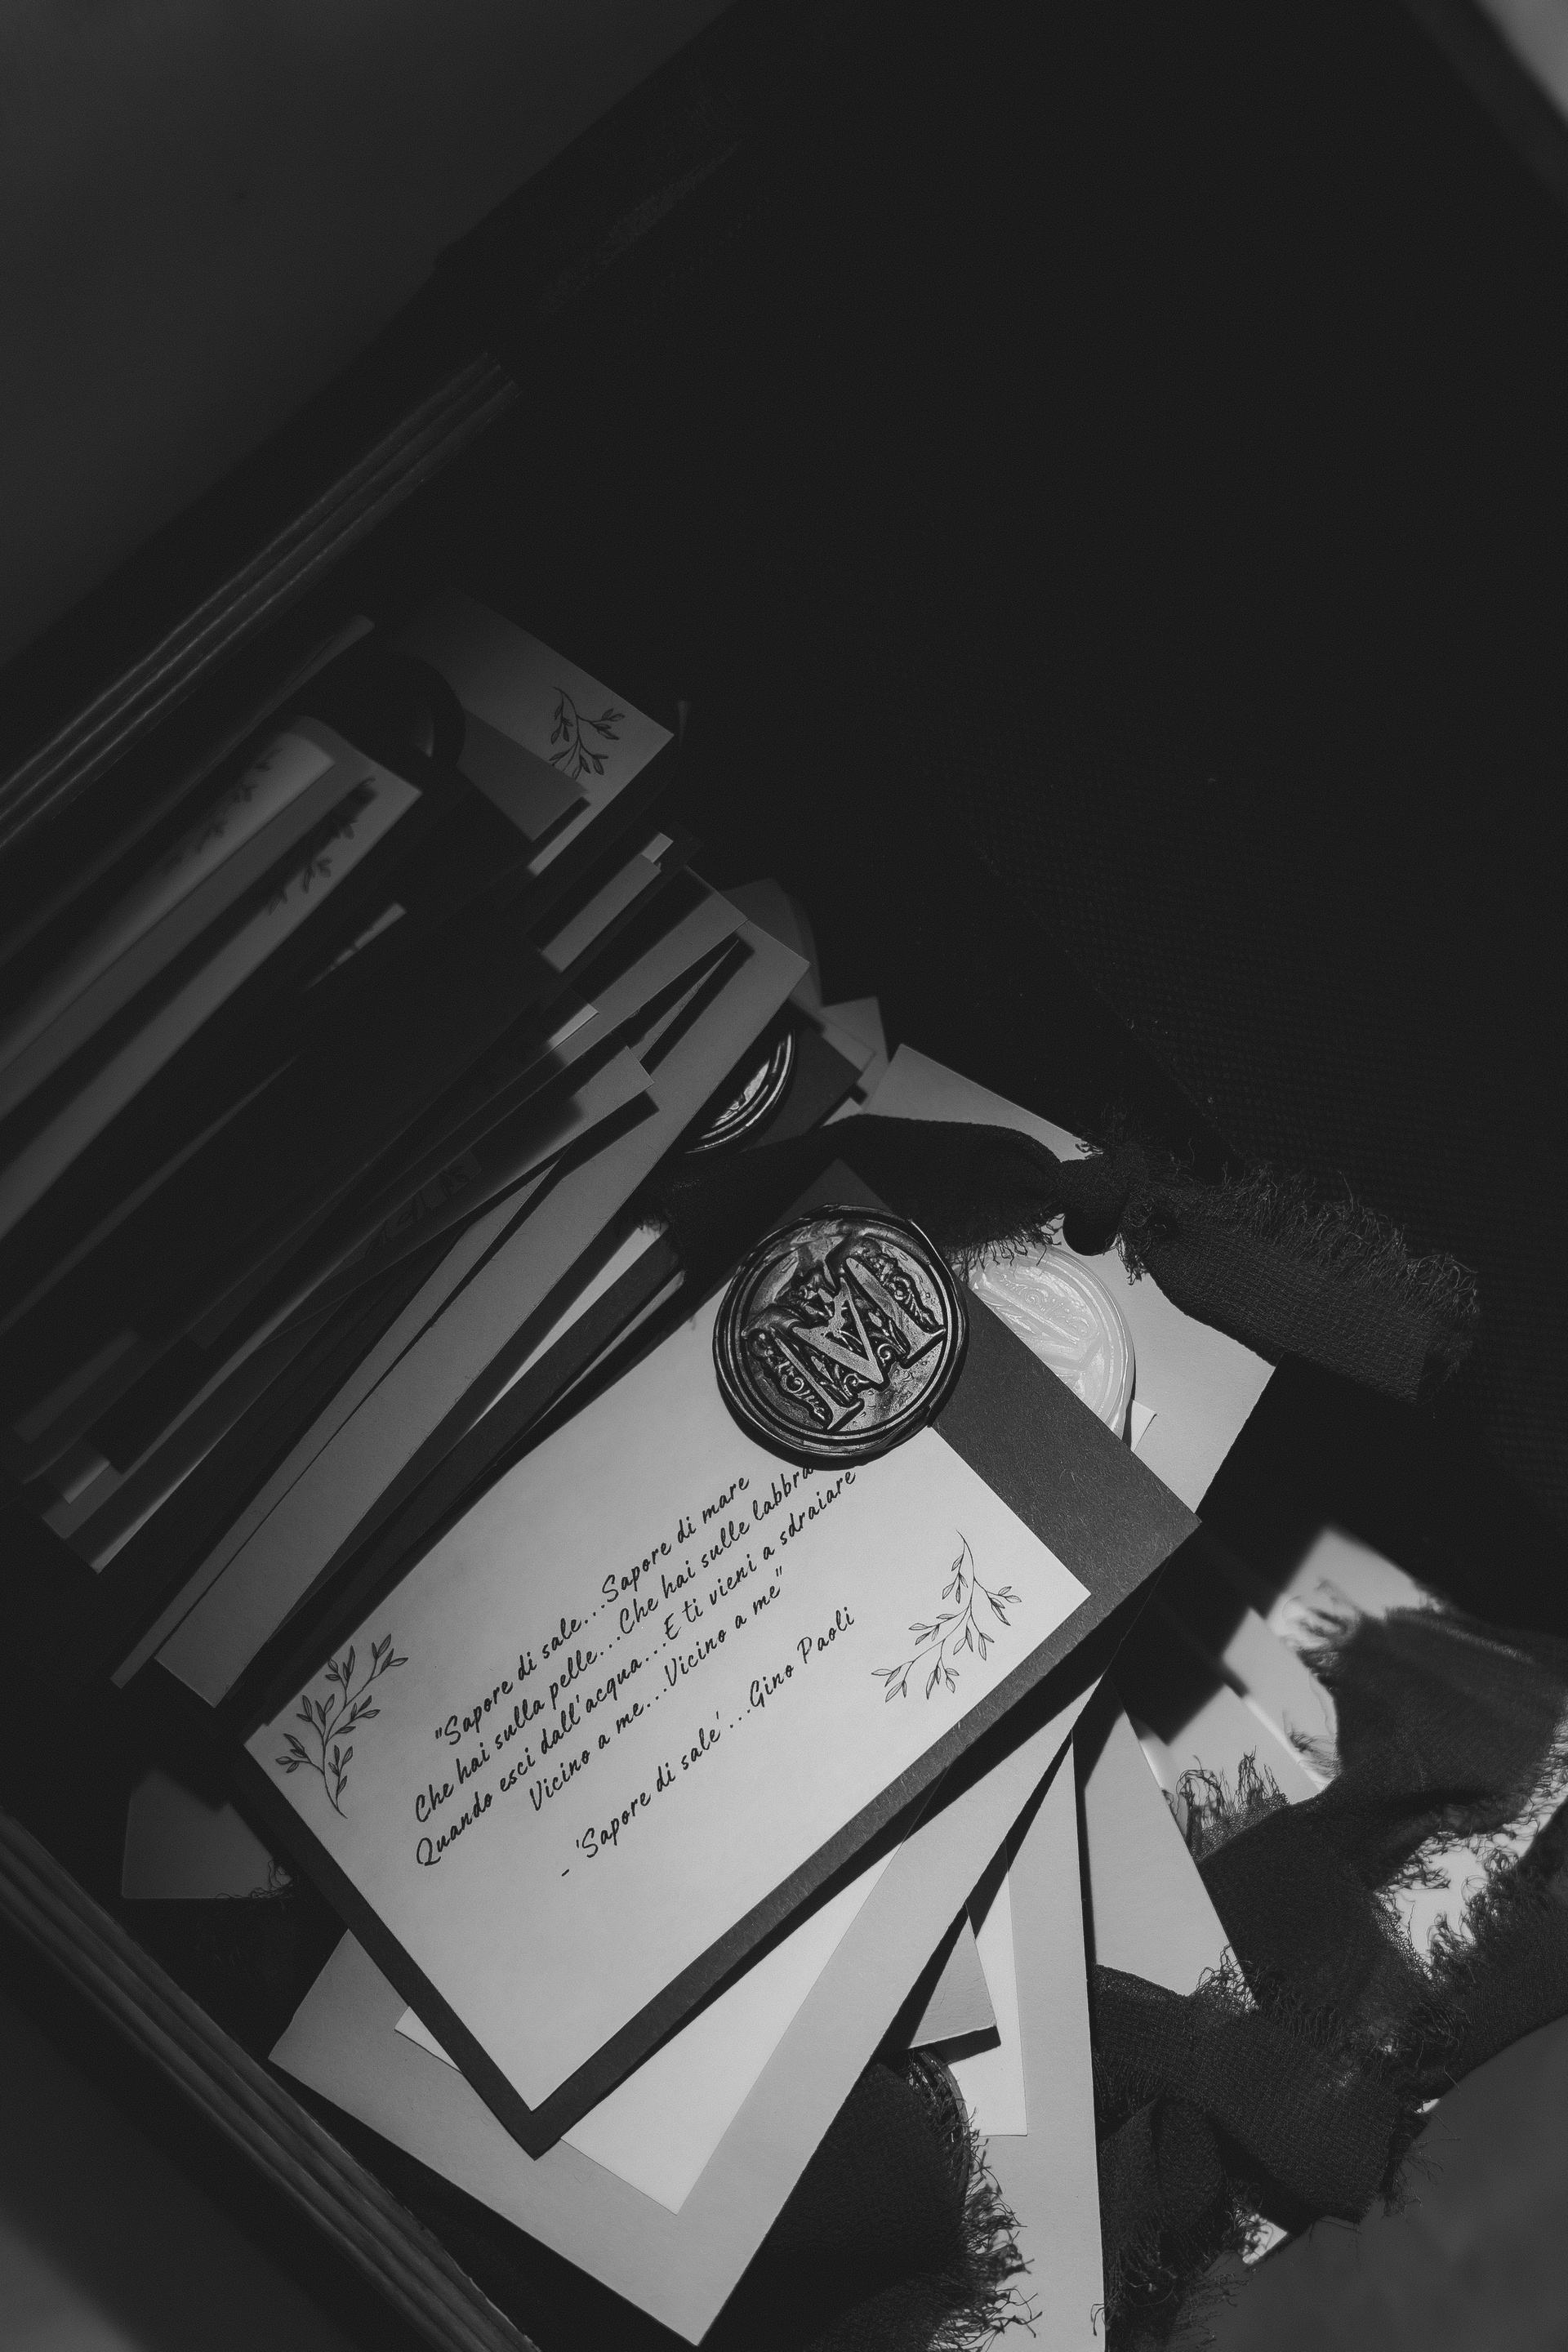 M
"Sapore di sale...Sapore di mare
Che hai sulla pelle...Che hai sulle labbra
Quando esci dall'acqua...E ti vieni a sdraiare
Vicino a me...Vicino a me"
- 'Sapore di sale'...Gino Paoli